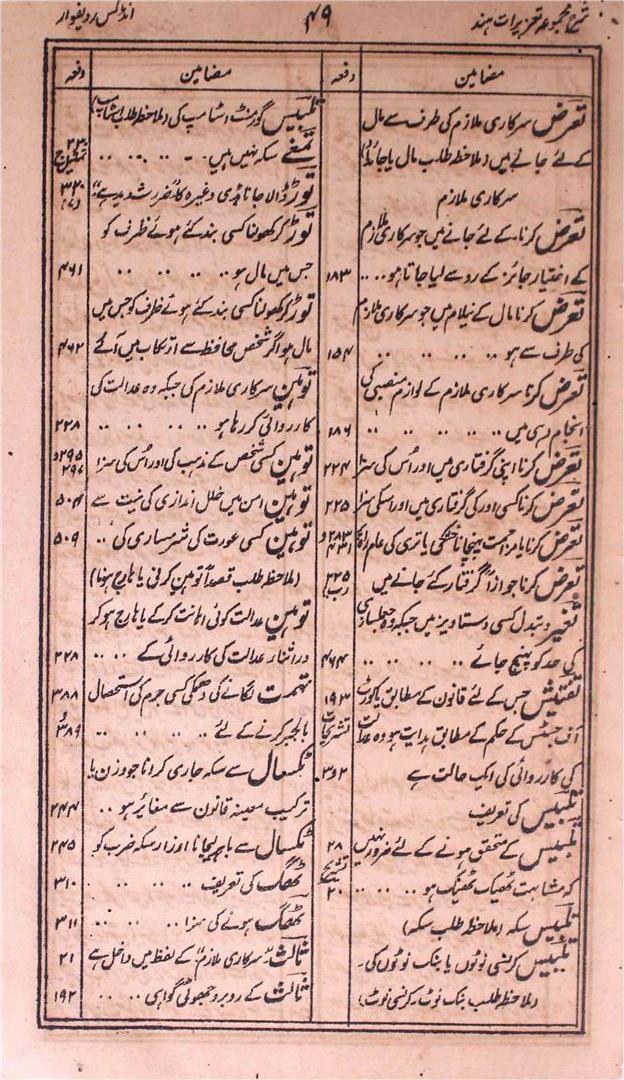 شرح مجموعہ تعزیرات ہند
۴۹
انڈکس ردیفوار
مضامین دفعہ
تعرض سرکاری ملازم کی طرف سے مال
کے لئے جانے میں (ملاحظہ طلب مال یا جائداد)
سرکاری ملازم
تعرض کرنا، کے لئے جانے میں جو سرکاری ملازم
کے اختیار جائز کے رو سے لیا جاتا ہو .. .. ۱۸۳
تعرض کرنا مال کے نیلام میں جو سرکاری ملازم
کی طرف سے ہو .. .. .. .. ۱۵۴
تعرض کرنا سرکاری ملازم کے لوازم منصبی کی
انجام دہی میں .. .. .. .. .. ۱۸۶
تعرض کرنا اپنی گرفتاری میں اور اُس کی سزا ۲۲۴
تعرض کرنا کسی اور کی گرفتاری میں اور اسکی سزا ۲۲۵
تعرض کرنا یا مزاحمت پہنچانا خشکی یا تری کی عام راہ ۲۸۳ و ۴۳۱
تعرض کرنا جوازاً گرفتار کئے جانے میں ۲۲۵ (ب)
تغیر و تبدل کسی دستاویز میں جبکہ وہ جعلسازی
کی حد کو پہنچ جائے .. .. .. .. ۴۶۴
تفتیش جس کے لئے قانون کے مطابق یا کورٹ ۱۹۳
آف جسٹس کے حکم کے مطابق ہدایت ہو وہ عدالت تشریحات
کی کارروائی کی ایک حالت ہے ۲ و ۳
تلبیس کی تعریف
تلبیس کے متحقق ہونے کے لئے ضرور نہیں ۲۸
کہ مشابہت ٹھیک ٹھیک ہو .. .. .. تشریح
تلبیس سکہ (ملاحظہ طلب سکہ)
تلبیس کرنسی نوٹوں یا بنک نوٹوں کی۔
(ملاحظہ طلب بنک نوٹ۔ کرنسی نوٹ)
مضامین دفعہ
تلبیس گورنمنٹ اسٹامپ کی (ملاحظہ طلب اسٹامپ)
تمغے سکہ نہیں ہیں .. .. .. .. ۲۳۰ تمثیل ج
توڑ ڈالا جانا ہڈی وغیرہ کا "ضرر شدید ہے" ۳۲۰
توڑ کر کھولنا کسی بند کئے ہوئے ظرف کو
جس میں مال ہو .. .. .. .. ۴۶۱
توڑ کر کھولنا کسی بند کئے ہوئے ظرف کو جس میں
مال ہو اگر شخص محافظ سے ارتکاب میں آئے ۴۶۲
توہین سرکاری ملازم کی جبکہ وہ عدالت کی
کارروائی کر رہا ہو .. .. .. .. ۲۲۸
توہین کسی شخص کے مذہب کی اور اُس کی سزا ۲۹۵ و ۲۹۷
توہین امن میں خلل اندازی کی نیت سے ۵۰۴
توہین کسی عورت کی شرمساری کی .. ۵۰۹
(ملاحظہ طلب قصداً توہین کرنی یا ہارج ہونا)
توہین عدالت کوئی اہانت کر کے یا ہارج ہو کر
در اثنار عدالت کی کارروائی کے .. .. ۲۲۸
تہمت لگانے کی دھمکی کسی جرم کی استحصال ۳۸۸ و
بالجبر کرنے کے لئے .. .. .. .. ۳۸۹
ٹکسال سے سکہ جاری کرانا جو وزن یا
ترکیب معینہ قانون سے مغائر ہو .. ۲۴۴
ٹکسال سے باہر لیجانا اوزار سکہ ضرب کو ۲۴۵
ٹھگ کی تعریف .. .. .. .. ۳۱۰
ٹھگ ہونے کی سزا .. .. .. .. ۳۱۱
ثالث "سرکاری ملازم" کے لفظ میں داخل ہے ۲۱
ثالث کے روبرو جھوٹی گواہی .. .. ۱۹۲